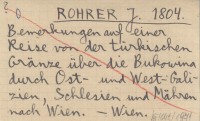 ROHRER J. 1804.
Bemerkungen auf einer
Reise von der türkischen
Gränze über die Bukowina
durch Ost- und West-Gali-
zien, Schlesien und Mähren
nach Wien. - Wien.